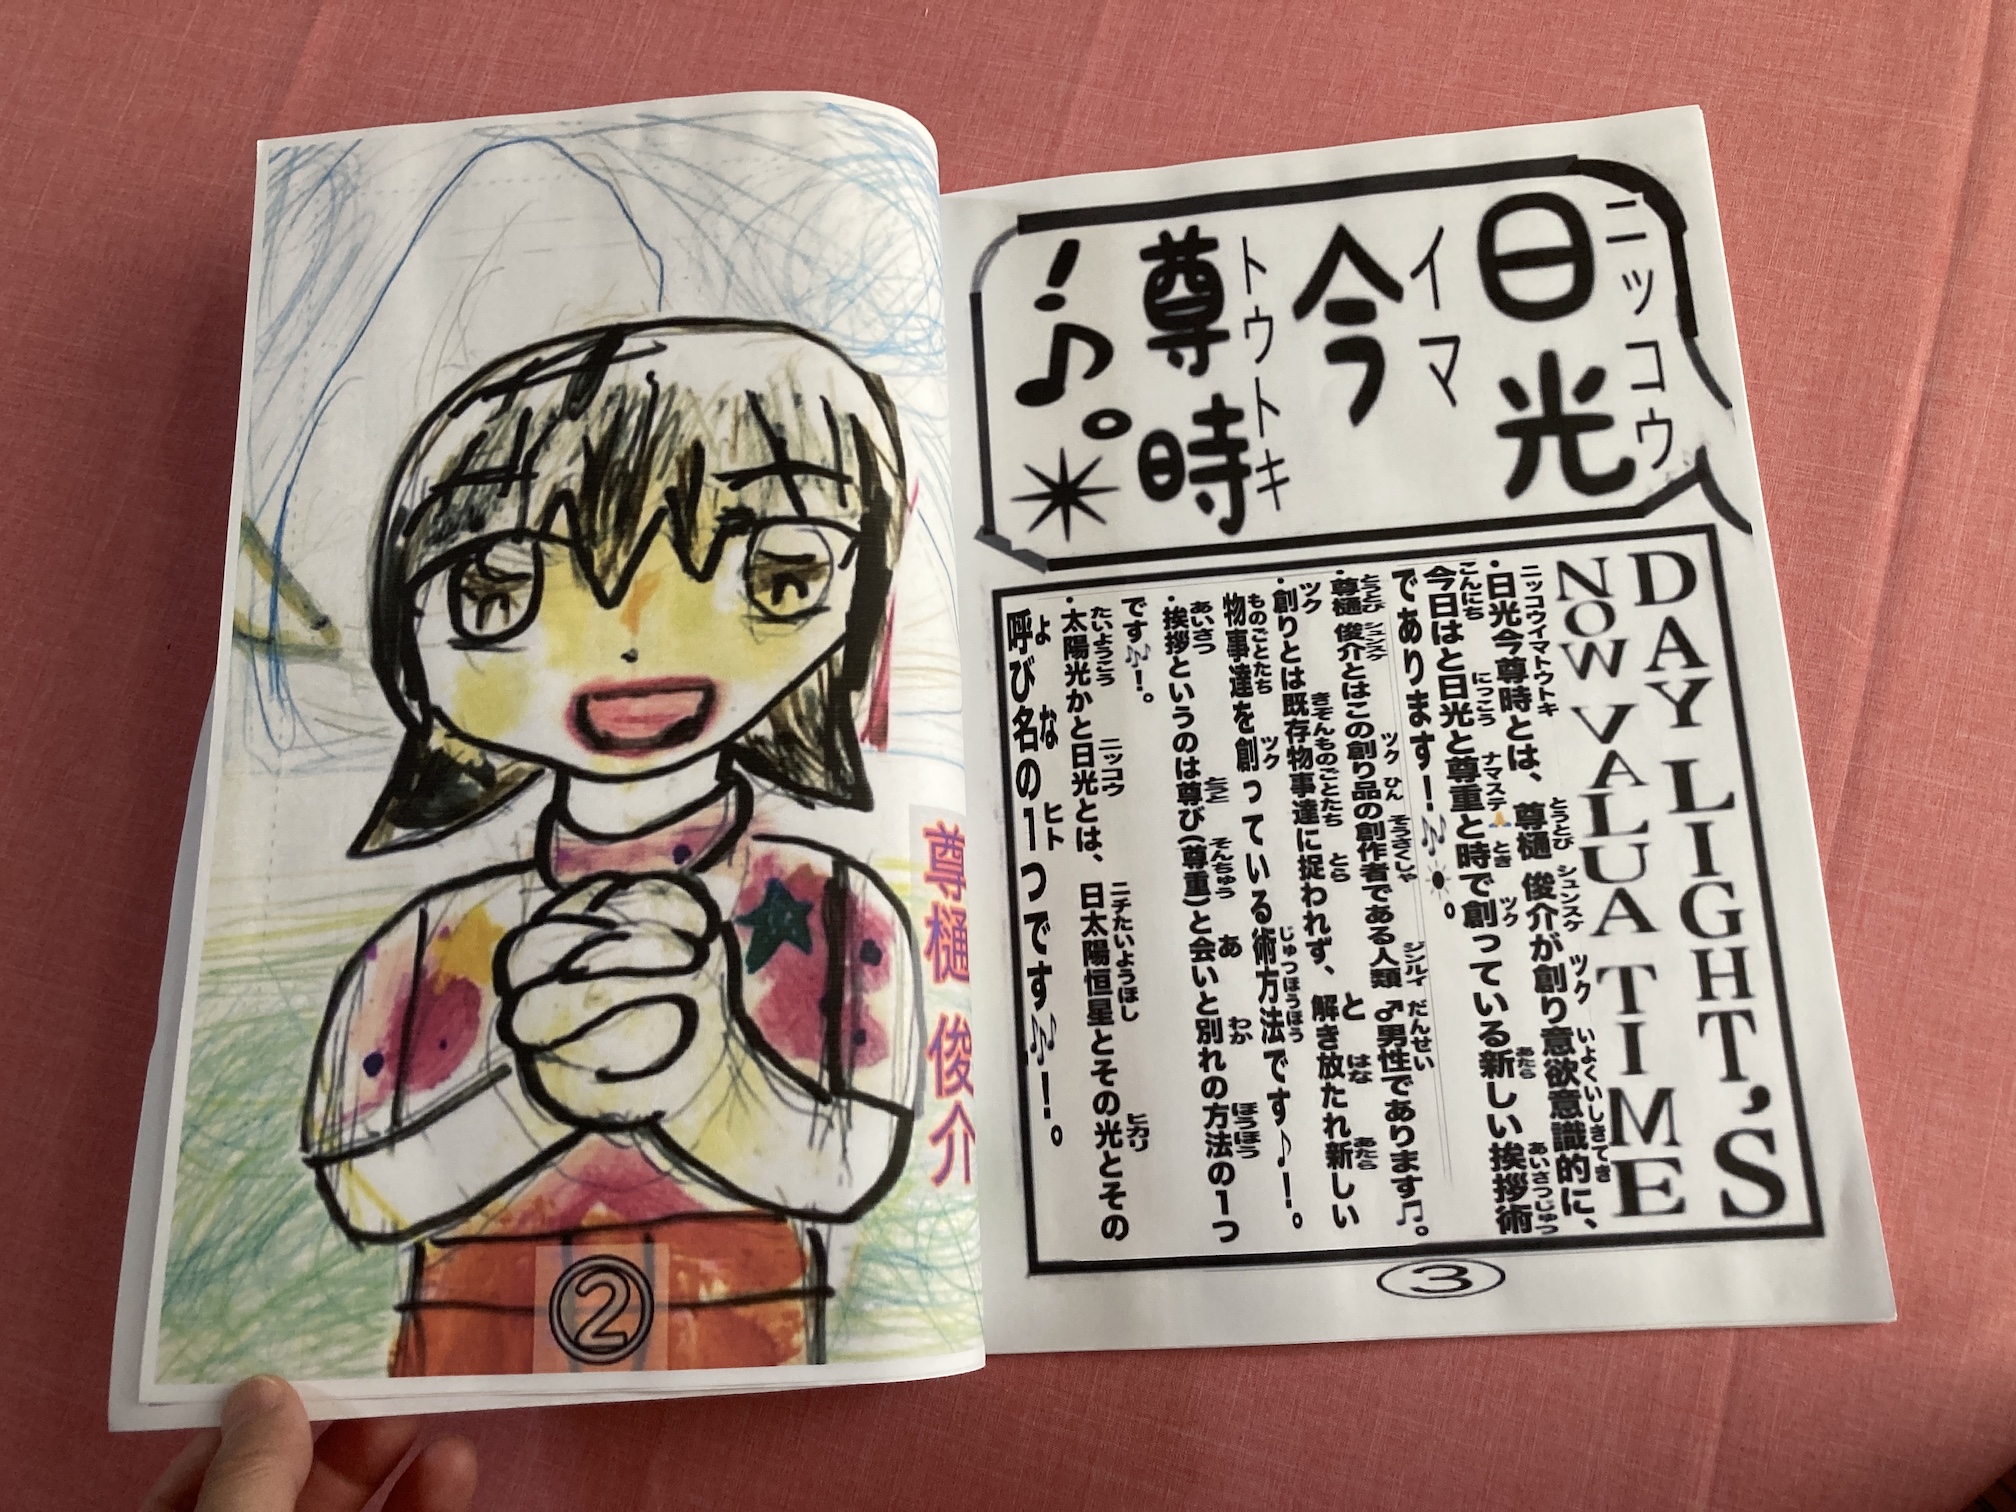 尊樋 俊介
②
日光
ニッコウ
今
イマ
尊時
トウトキ
！♪。
DAY LIGHT'S
NOW VALUA TIME
・日光今尊時とは、尊樋 俊介が創り意欲意識的に、
ニッコウイマトウトキ とうとび シュンスケ ツク いよくいしきてき
今日はと日光と尊重と時で創っている新しい挨拶術
こんにち にっこう ナマステ🙏 とき ツク あたら あいさつじゅつ
であります！🎶☀。
・尊樋 俊介とはこの創り品の創作者である人類♂男性であります♫。
とうとび シュンスケ ツク ひん そうさくしゃ ジンルイ だんせい
・創りとは既存物事達に捉われず、解き放たれ新しい
ツク きぞんものごとたち とら と はな あたら
物事達を創っている術方法です♪！。
ものごとたち ツク じゅつほうほう
・挨拶というのは尊び(尊重)と会いと別れの方法の1つ
あいさつ とうと そんちゅう あ わか ほうほう
です🎶！。
・太陽光かと日光とは、日太陽恒星とその光とその
たいようこう ニッコウ ニチたいようほし ヒカリ
呼び名の1つです🎶！。
よ な ヒト
③